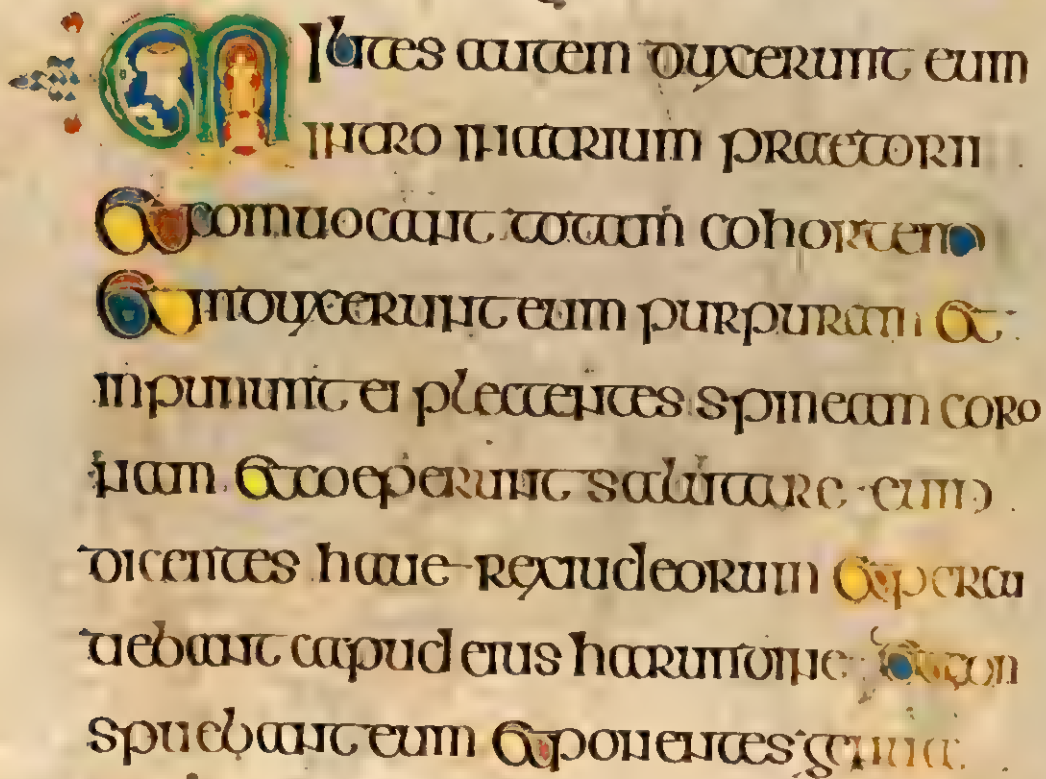 Milites autem duxerunt eum
intro in atrium praetorii
Et conuocant totam cohortem
Et induxerunt eum purpuram et
inpununt ei plectentes spineam coro
nam Et coeperunt salutare eum
dicentes haue rex iudeorum Et percu
tiebant capud eius harundine Et con
spuebant eum Et ponentes genua